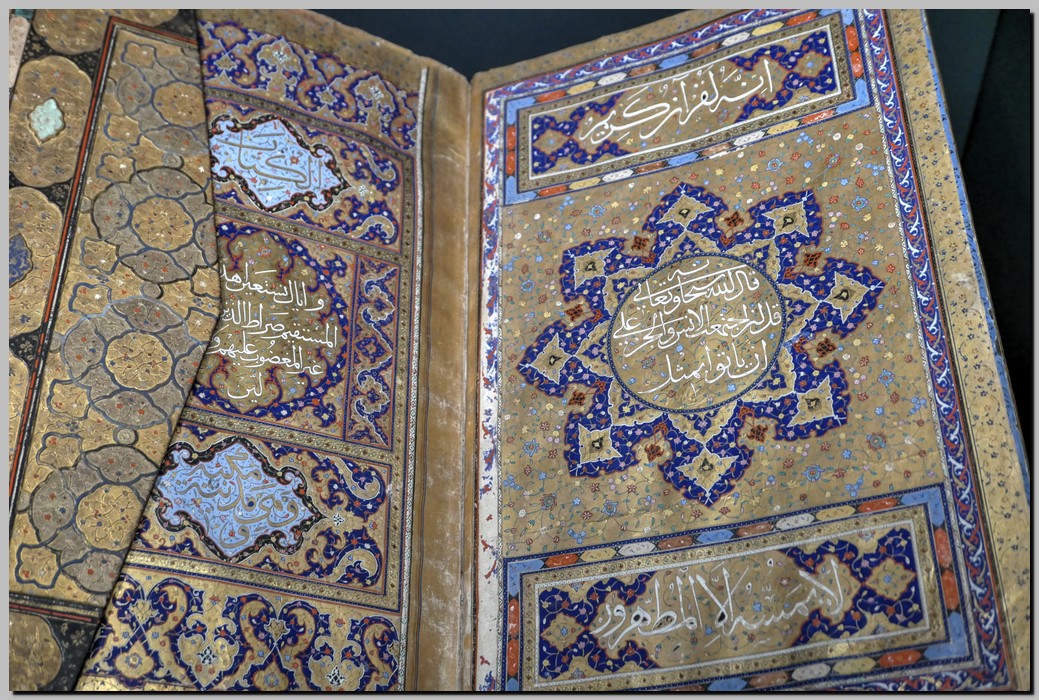 انه لقرآن كريم
قال الله سبحانه وتعالى
قل لئن اجتمعت الانس والجن على
ان يأتوا بمثل
لا يمسه الا المطهرون
الكتاب
و اياك نستعين اهد
المستقيم صراط الذين
غير المغضوب عليهم و
لين